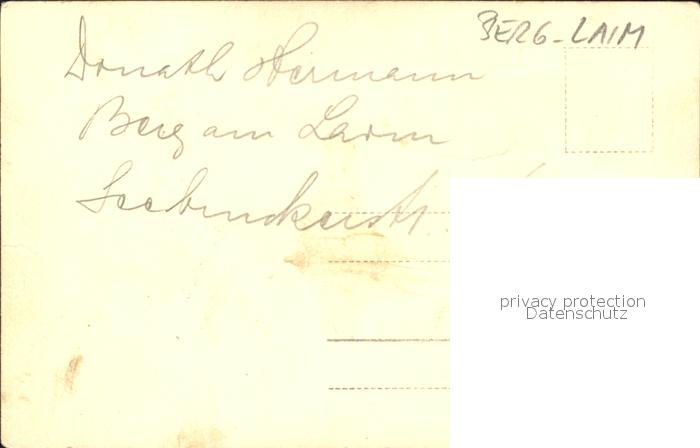 BERG-LAIM
Donath Hermann
Berg am Laim
Seebruckerstr
privacy protection
Datenschutz